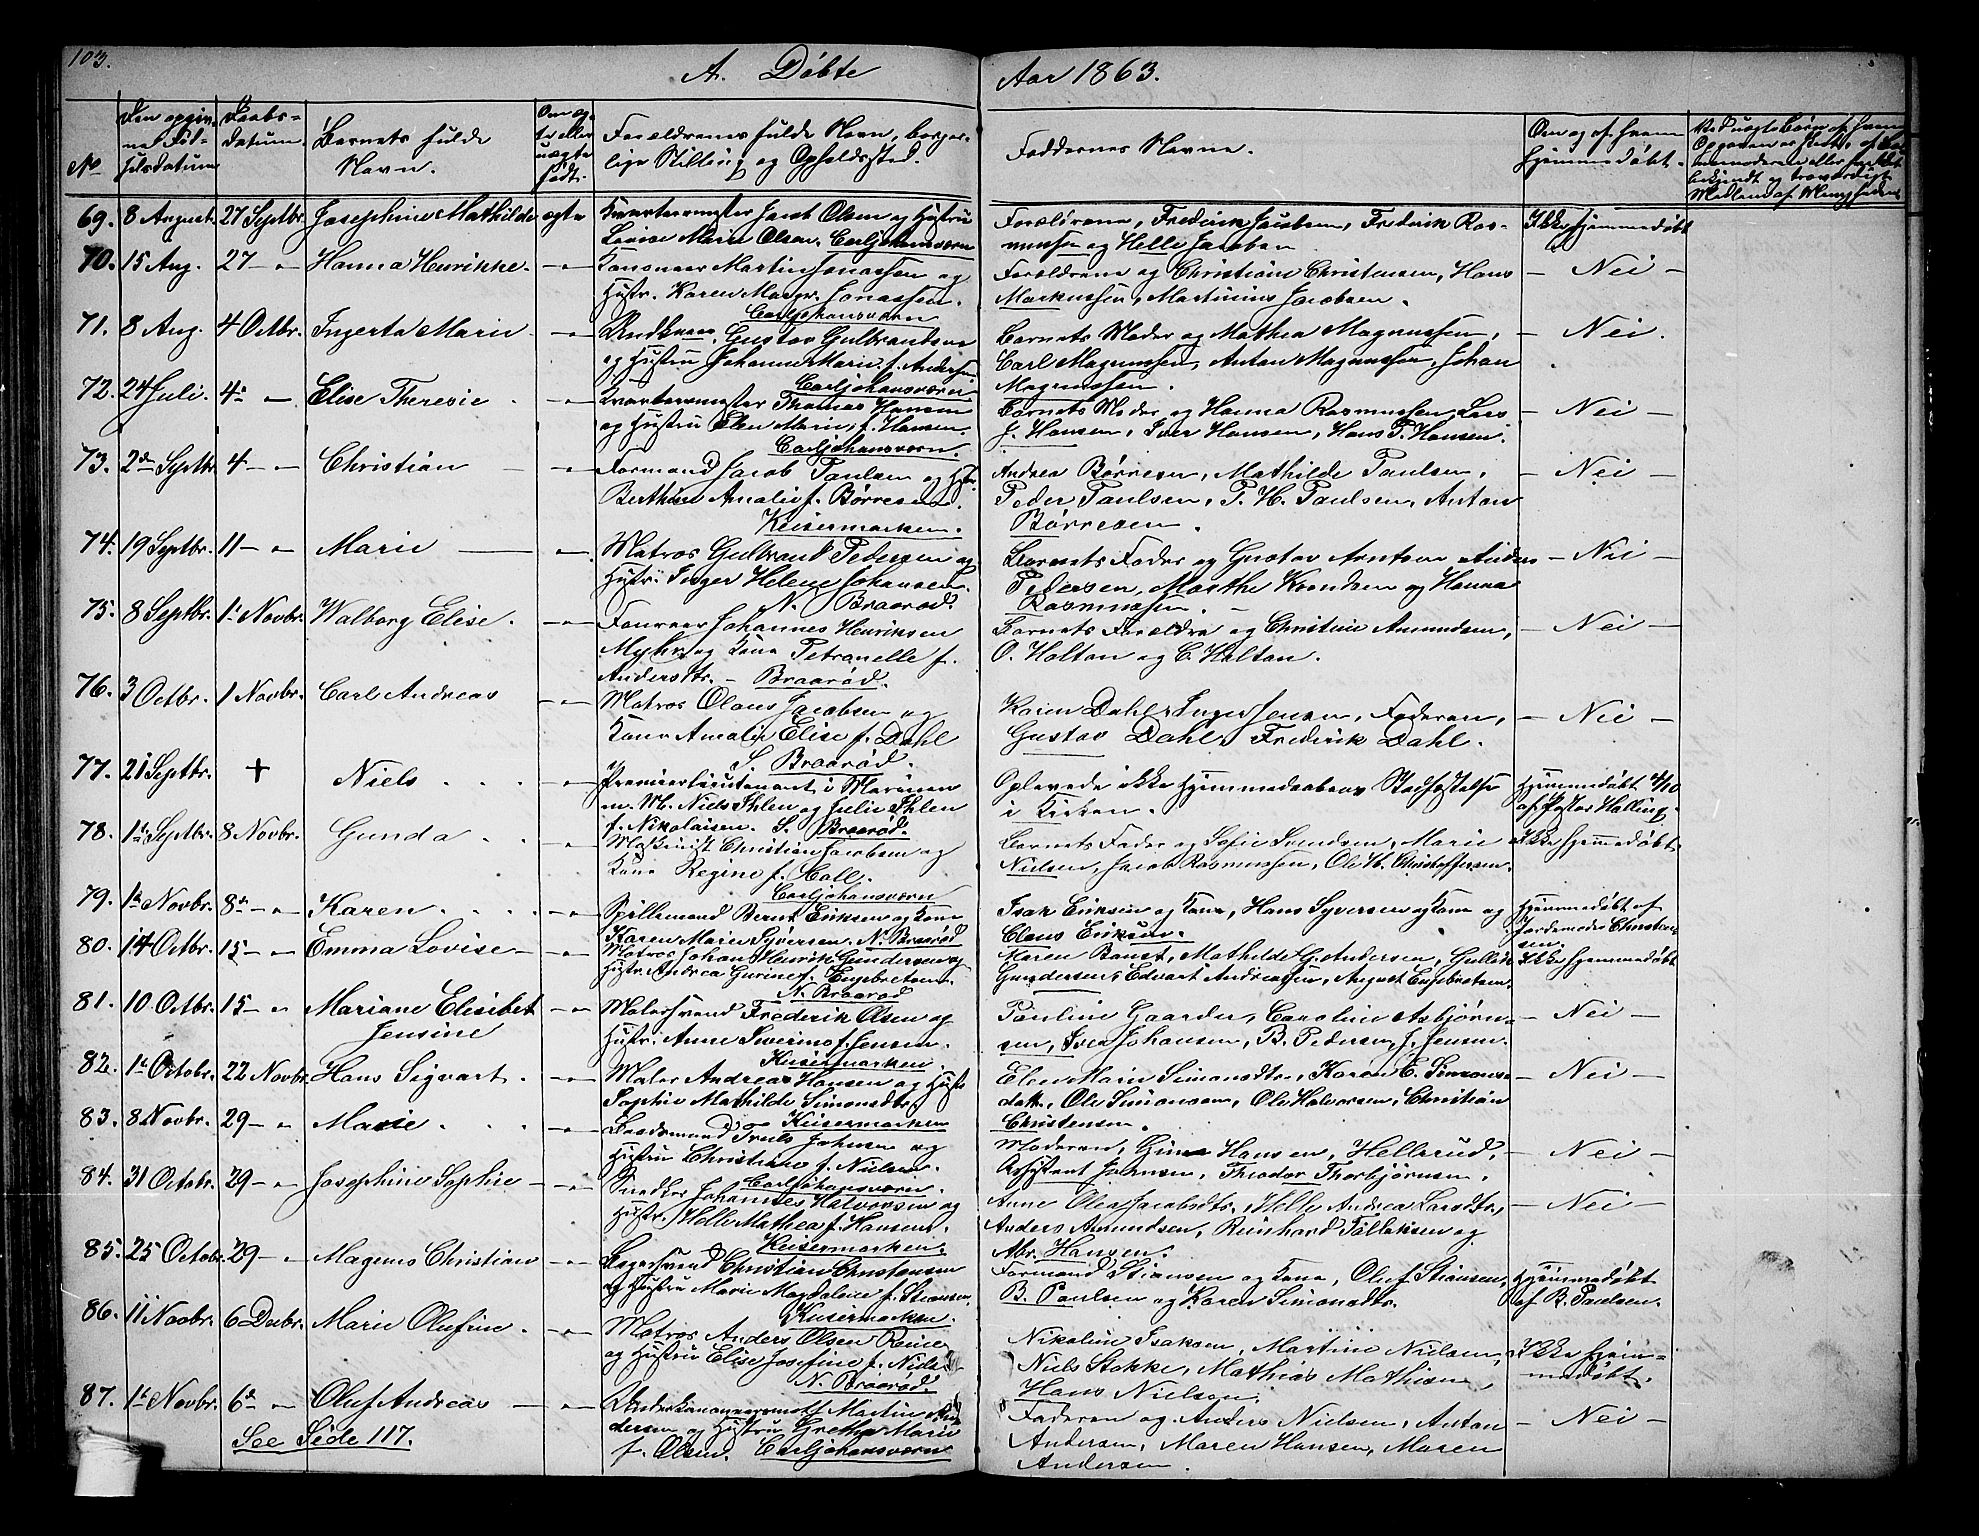 103.
A. Døbte
Aar 1863.
No
Den opgiv-
ne Fød-
selsdatum
Daabs-
datum.
Barnets fulde
Navn.
Om æg-
te eller
uægte
født.
Forældrenes fulde Navn, borger-
lige Stilling og Opholdssted.
Faddernes Navne.
Om og af hvem
hjemmedøbt.
69. 8 August. 27 Septbr. Josephine Mathilde ægte
Kvarteermester Jacob Olsen og Hustru
Lovise Marie Olsen. Carljohansværn
Forældrene, Fredrik Jacobsen, Fredrik Ras-
mussen og Helle Jacobsen
Ikke hjemmedøbt
70. 15 Aug. 27 — " Hanna Henrikke. — " —
Kanoneer Martin Jonassen og
Hustr. Karen Margr. Jonassen.
Carljohansværn
Forældrene og Christiane Christensen, Hans
Markussen, Martinius Jacobsen.
— Nei —
71. 8 Aug. 4 Octbr. Ingerta Marie — " —
Gustav Gulbrantsen
og Hustru Johanne Marie f. Andersen
Carljohansværn
Barnets Moder og Mathea Magnussen,
Carl Magnussen, Anton Magnussen, Johan
Magnussen.
— Nei.
72. 24 Juli. 4 — Elise Theresie — " —
Kvarteermester Thomas Hansen
og Hustru Elen Marie, f. Hansen.
Carljohansværn.
Barnets Moder og Hanna Rasmussen, Lars
J. Hansen, Iver Hansen, Hans P. Hansen.
— Nei —
73. 2de Septbr. 4 — " Christian — " —
Formand Jacob Paulsen og Hustr.
Berthine Amalie f. Børresen.
Keisermarken.
Andrea Børresen, Mathilde Paulsen,
Peder Paulsen, P. H. Paulsen, Anton
Børresen.
— Nei —
74. 19 Septbr. 11 — " Marie — " —
Matros Gulbrand Pedersen og
Hustr. Inger Helene Johansen.
N. Braarød.
Barnets Fader og Gustav Arntsen Anders
Pedersen, Marthe Knudsen og Hanna
Rasmussen.
— Nei —
75. 8 Septbr. 1. Novbr. Walborg Elise. — " —
Johannes Henriksen
Myhre og Kone Petronelle f.
Andersdtr. — Braarød.
Barnets Forældre og Christine Amundsen,
O. Holtan og C. Holtan.
— Nei —
76. 3 Octbr. 1 Novbr. Carl Andreas — " —
Matros Olaus Jacobsen og
Kone Amalie Elise f. Dahl
S. Braarød.
Karen Dahl, Inger Jensen, Faderen,
Gustav Dahl, Fredrik Dahl.
— Nei —
77. 21 Septbr. + Niels — " —
Premierlieutenant i Marinen
m. M. Niels Ihlen og Julie Ihlen
f. Nikolaisen. S. Braarød.
Oplevede ikke Hjemmedaabens Stadfæstelse
i Kirken.
Hjemmedøbt 4/10
af Pastor Halling.
78. 1ste Septbr. 8 Novbr. Gunda — " —
Maskinist Christian Jacobsen og
Kone Regine f. Hall.
Carljohansværn
Barnets Fader og Sofie Svendsen, Marie
Nielsen, Jacob Rasmussen, Ole H. Christoffersen.
Ikke hjemmedøbt.
79. 1ste Novbr. 8de — " Karen. — " —
Spillemand Bernt Eriksen og Kone
Karen Marie Syversen. N. Braarød
Isak Eriksen og Kone, Hans Syversen og Kone og
Claus Eriksen.
Hjemmedøbt af
Jordemoder Christen-
sen.
80. 14 Octbr. 15 — " Emma Lovise — " —
Matros Johan Henrik Gundersen og
Hustr. Andrea Gurine f. Engebretsen.
N. Braarød
Maren Banst, Mathilde G. Andersen, Gullik
Gundersen, Edvart Andreassen, August Engebretsen.
Ikke hjemmedøbt
81. 10 Octbr. 15 — " Mariane Elisabet — " —
Jensine
Malersvend Frederik Olsen og
Hustr. Anne Severine f. Jensen.
Keisermarken
Pauline Gaarder, Caroline Asbjørn-
sen, Sven Johansen, B. Pedersen, J. Jensen.
— Nei —
82. 1ste Octobr. 22 Novbr. Hans Sigvart. — " —
Maler Andreas Hansen og Hustr.
Sophie Mathilde Simonsdtr.
Keisermarken
Elen Marie Simonsdtr., Karen E. Simons-
datr., Ole Simonsen, Ole Halvorsen, Christian
Christensen.
— Nei —
83. 8 Novbr. 29 — " Marie. — " —
Baadsmand Truls Johnsen og
Hustru Christiane f. Nielsen.
Carljohansværn.
Moderen, Gine Hansen, Hellerud,
Assistent Johnsen, Theodor Thorbjørnsen.
— Nei —
84. 31 Octobr. 29 — " Josephine Sophie — " —
Snedker Johannes Halvorsen og
Hustr. Helle Mathea f. Hansen.
Keisermarken.
Anne Olea Jacobsdtr., Helle Andrea Larsdtr.,
Anders Amundsen, Reinhard Tollaksen og
Abr. Hansen.
— Nei —
85. 25 Octobr. 29 — " Magnus Christian — " —
Bagersvend Christian Christensen
og Hustru Marie Magdalene f. Stiansen.
Keisermarken.
Formand Stiansen og Kone, Oluf Stiansen,
B. Paulsen og Karen Simonsdtr.
Hjemmedøbt
af R. Paulsen.
86. 11 Novbr. 6 Decbr. Marie Olufine. — " —
Matros Anders Olsen Reine
og Hustru Elise Josefine f. Niels-
N. Braarød.
Nikoline Isaksen, Martine Nielsen,
Niels Stokke, Mathias Mathisen,
Hans Nielsen.
Ikke hjem-
medøbt.
87. 1ste Novbr. 6de — Oluf Andreas — " —
Martin
og Hustru Grethe Marie
f. Olsen. Carljohansværn
Faderen og Anders Nielsen, Anton
Andersen, Maren Hansen, Maren
Andersen.
— Nei —
See Side 117.